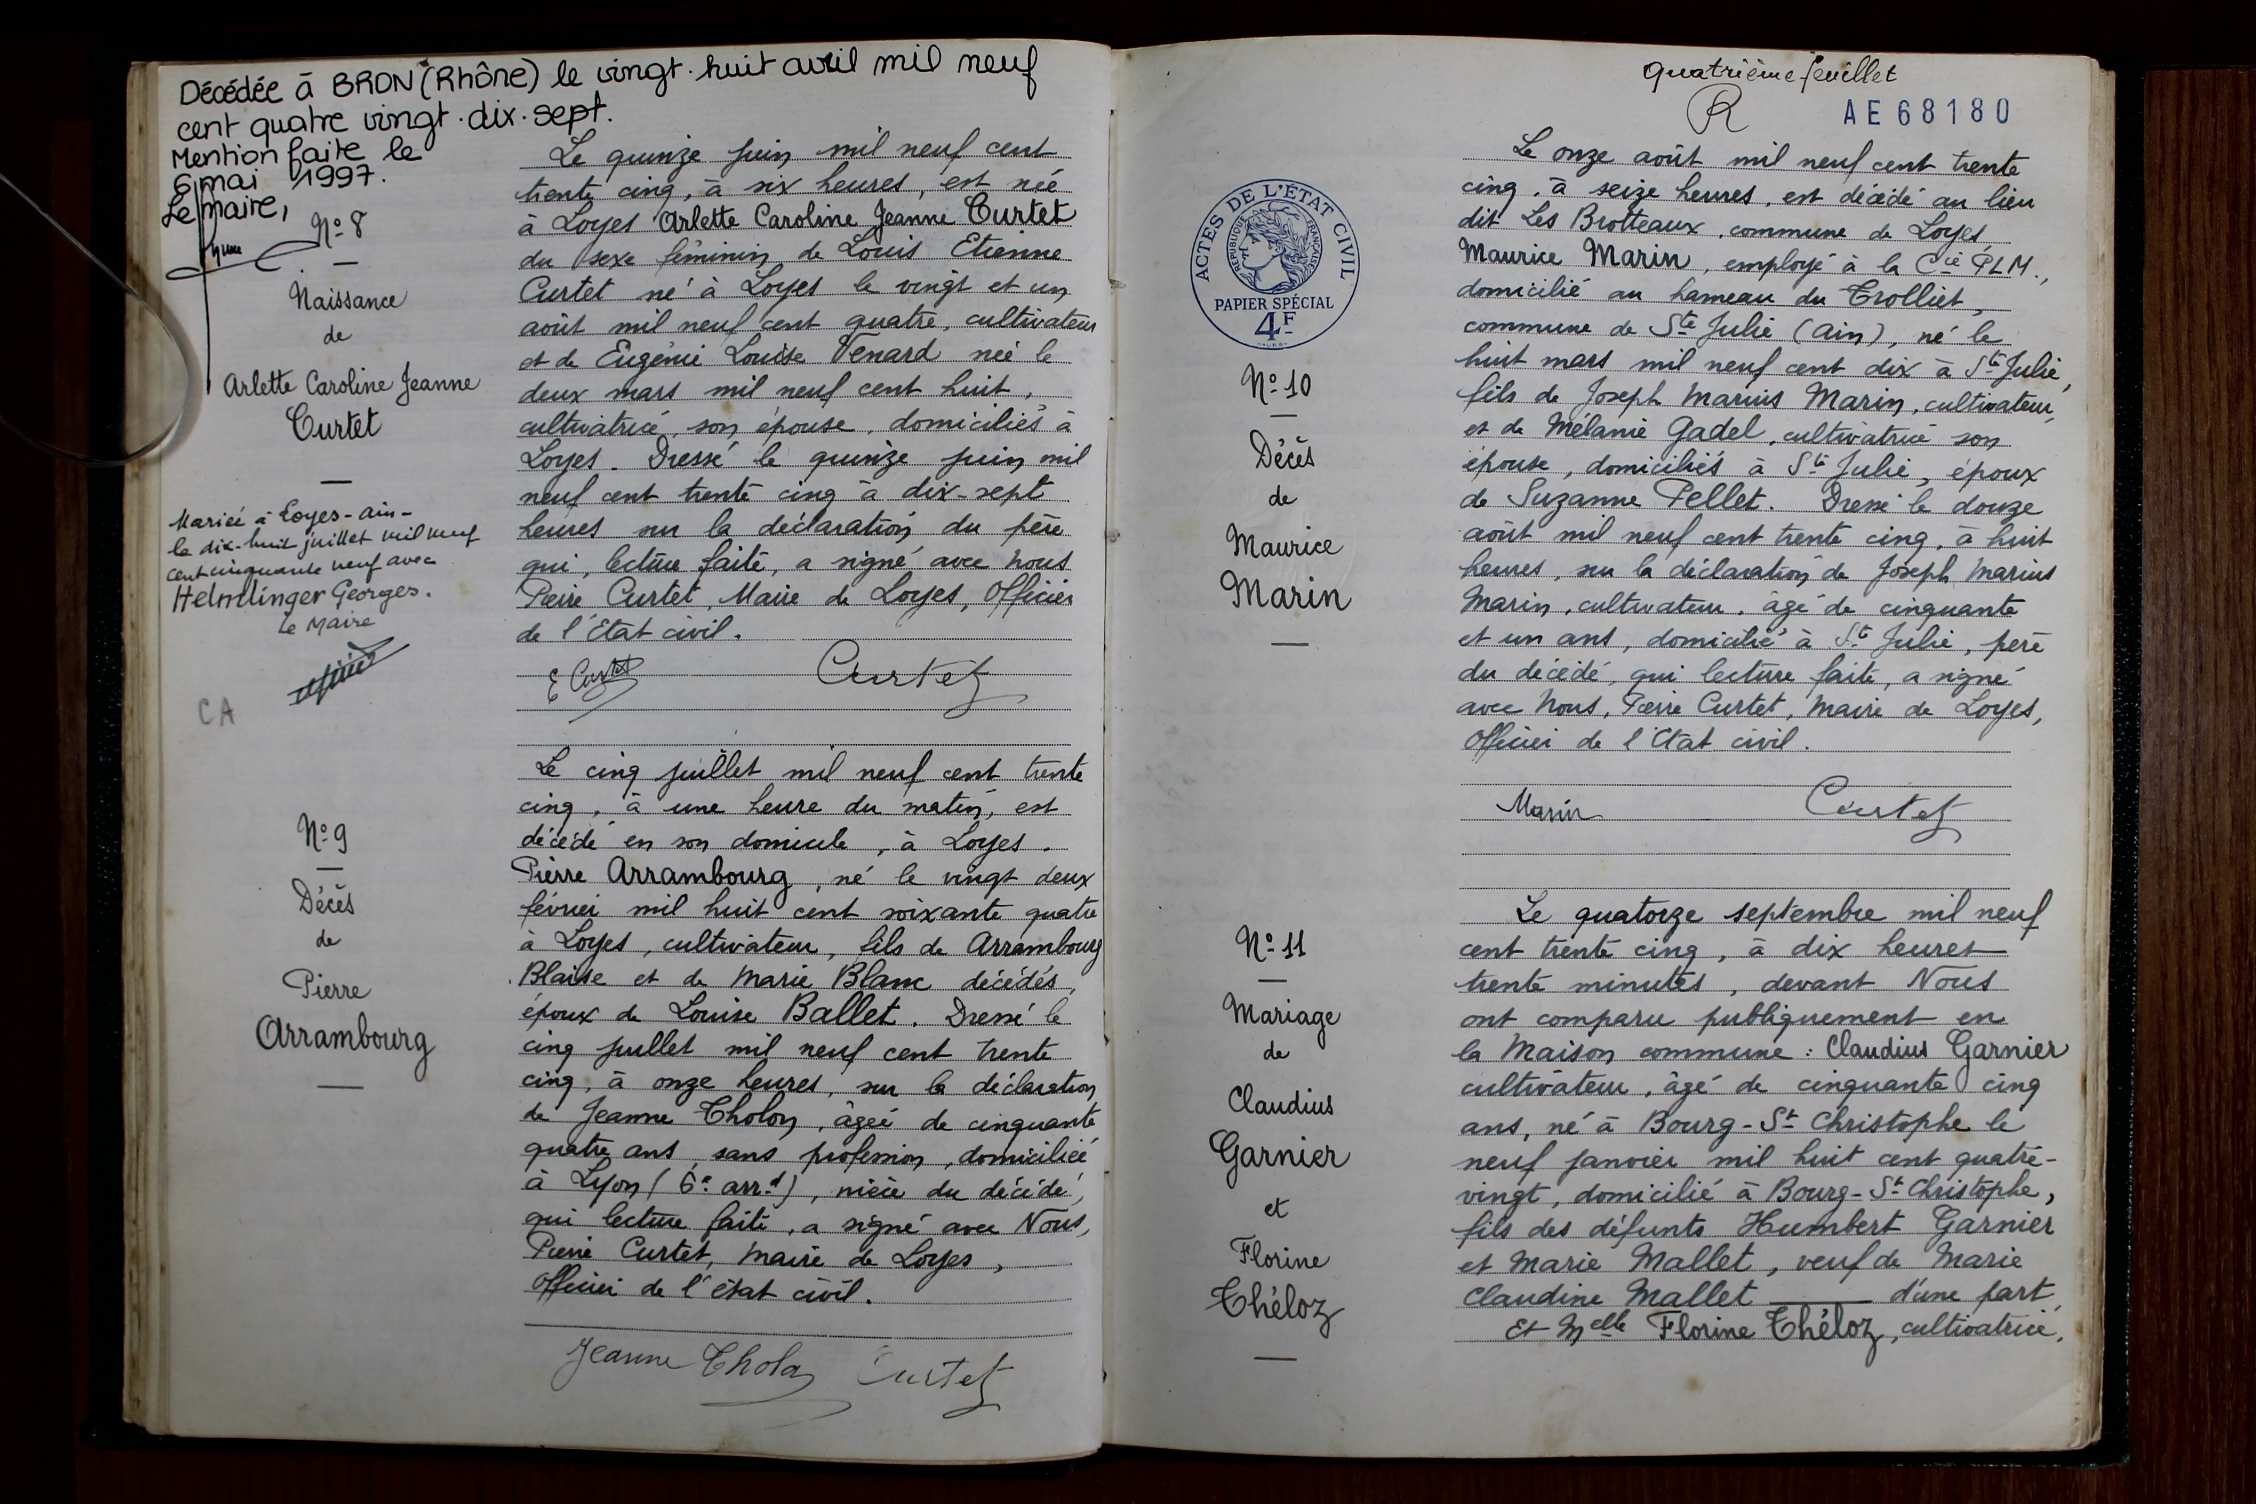 Décédée à BRON (Rhône) le vingt.huit avril mil neuf
cent quatre vingt.dix.sept.
Mention faite le
6 mai 1997.
Le maire,
Nº 8
Naissance
de
Arlette Caroline Jeanne
Curtet
Mariée à Loyes-ain-
le dix-huit juillet mil neuf
cent cinquante neuf avec
Helmlinger Georges.
Le Maire
CA
Le quinze juin mil neuf cent
trente cinq, à six heures, est née
à Loyes Arlette Caroline Jeanne Curtet
du sexe féminin, de Louis Etienne
Curtet né à Loyes le vingt et un
août mil neuf cent quatre, cultivateur
et de Eugénie Louise Venard née le
deux mars mil neuf cent huit,
cultivatrice, son épouse, domiciliés à
Loyes. Dressé le quinze juin mil
neuf cent trente cinq à dix-sept
heures sur la déclaration du père
qui, lecture faite, a signé avec nous
Pierre Curtet, Maire de Loyes, Officier
de l'Etat civil.
E Curtet Curtet
Nº 9
Décès
de
Pierre
Arrambourg
Le cinq juillet mil neuf cent trente
cinq, à une heure du matin, est
décédé en son domicile, à Loyes.
Pierre Arrambourg, né le vingt deux
février mil huit cent soixante quatre
à Loyes, cultivateur, fils de Arrambourg
Blaise et de Marie Blanc décédés,
époux de Louise Ballet. Dressé le
cinq juillet mil neuf cent trente
cinq, à onze heures, sur la déclaration
de Jeanne Tholon, âgée de cinquante
quatre ans, sans profession, domiciliée
à Lyon (6e arr.d), nièce du décédé,
qui lecture faite, a signé avec Nous,
Pierre Curtet, maire de Loyes,
Officier de l'état civil.
Jeanne Tholon Curtet
quatrième feuillet
R AE 68180
ACTES DE L'ETAT CIVIL
REPUBLIQUE FRANÇAISE
PAPIER SPÉCIAL
4F
Nº 10
Décès
de
Maurice
Marin
Le onze août mil neuf cent trente
cinq, à seize heures, est décédé au lieu
dit Les Brotteaux, commune de Loyes
Maurice Marin, employé à la Cie PLM.,
domicilié au hameau du Trolliet,
commune de Ste Julie (Ain), né le
huit mars mil neuf cent dix à Ste Julie,
fils de Joseph Marius Marin, cultivateur,
et de Mélanie Gadel, cultivatrice son
épouse, domiciliés à Ste Julie, époux
de Suzanne Pellet. Dressé le douze
août mil neuf cent trente cinq, à huit
heures, sur la déclaration de Joseph Marius
Marin, cultivateur, âgé de cinquante
et un ans, domicilié à Ste Julie, père
du décédé, qui lecture faite, a signé
avec Nous, Pierre Curtet, Maire de Loyes,
Officier de l'Etat civil.
Marin Curtet
Nº 11
Mariage
de
Claudius
Garnier
et
Florine
Théloz
Le quatorze septembre mil neuf
cent trente cinq, à dix heures
trente minutes, devant Nous
ont comparu publiquement en
la Maison commune : Claudius Garnier
cultivateur, âgé de cinquante cinq
ans, né à Bourg-St Christophe le
neuf janvier mil huit cent quatre-
vingt, domicilié à Bourg-St Christophe,
fils des défunts Humbert Garnier
et Marie Mallet, veuf de Marie
Claudine Mallet d'une part,
Et Melle Florine Théloz, cultivatrice,